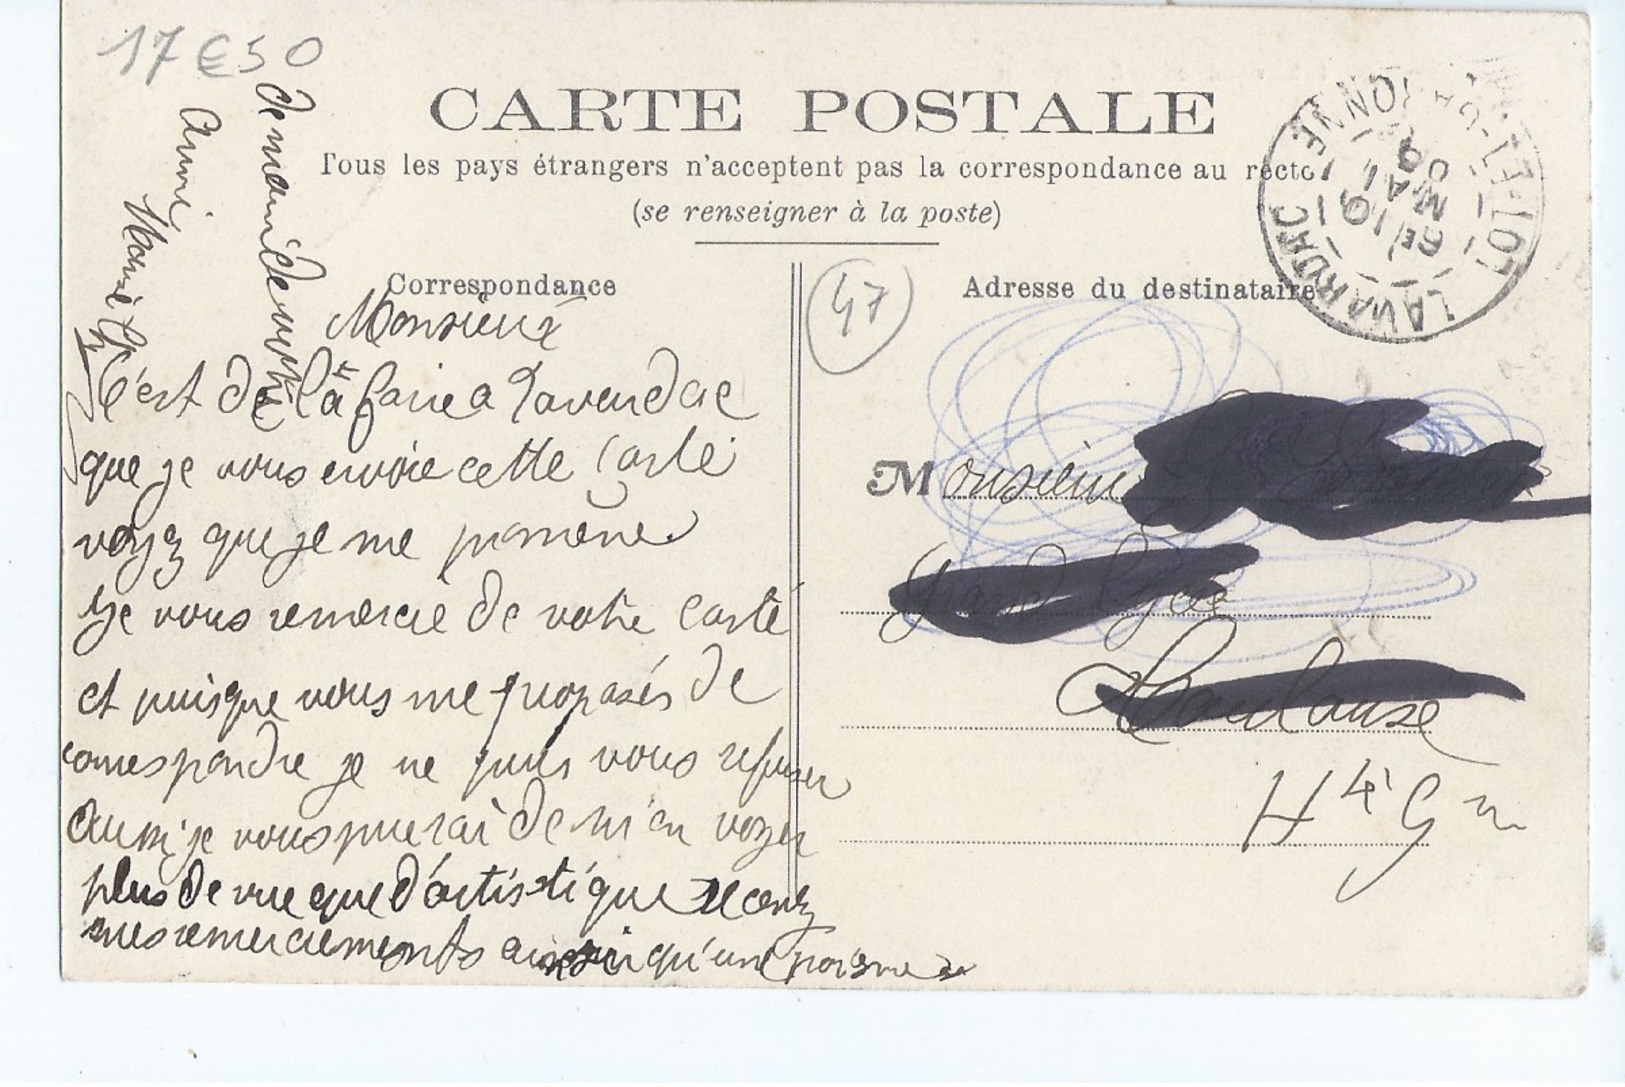 17 € 50
CARTE POSTALE
Tous les pays étrangers n'acceptent pas la correspondance au recto
(se renseigner à la poste)
Correspondance
Adresse du destinataire
47
LAVARDAC
LOT-ET-GARONNE
6E/10
MAI
09
Monsieur
C'est de la foire a Lavardac
que je vous envoie cette carte
voyez que je me promène
Je vous remercie de votre carte
et puisque vous me proposés de
correspondre je ne puis vous refuser
aussi je vous prierai de m'en voyer
plus de vue que d'artistique Recevez
mes remerciements ainsi qu'une poignée
de main de votre
amie
Marie
Monsieur
Grand Lycée
Toulouse
Hte Gne